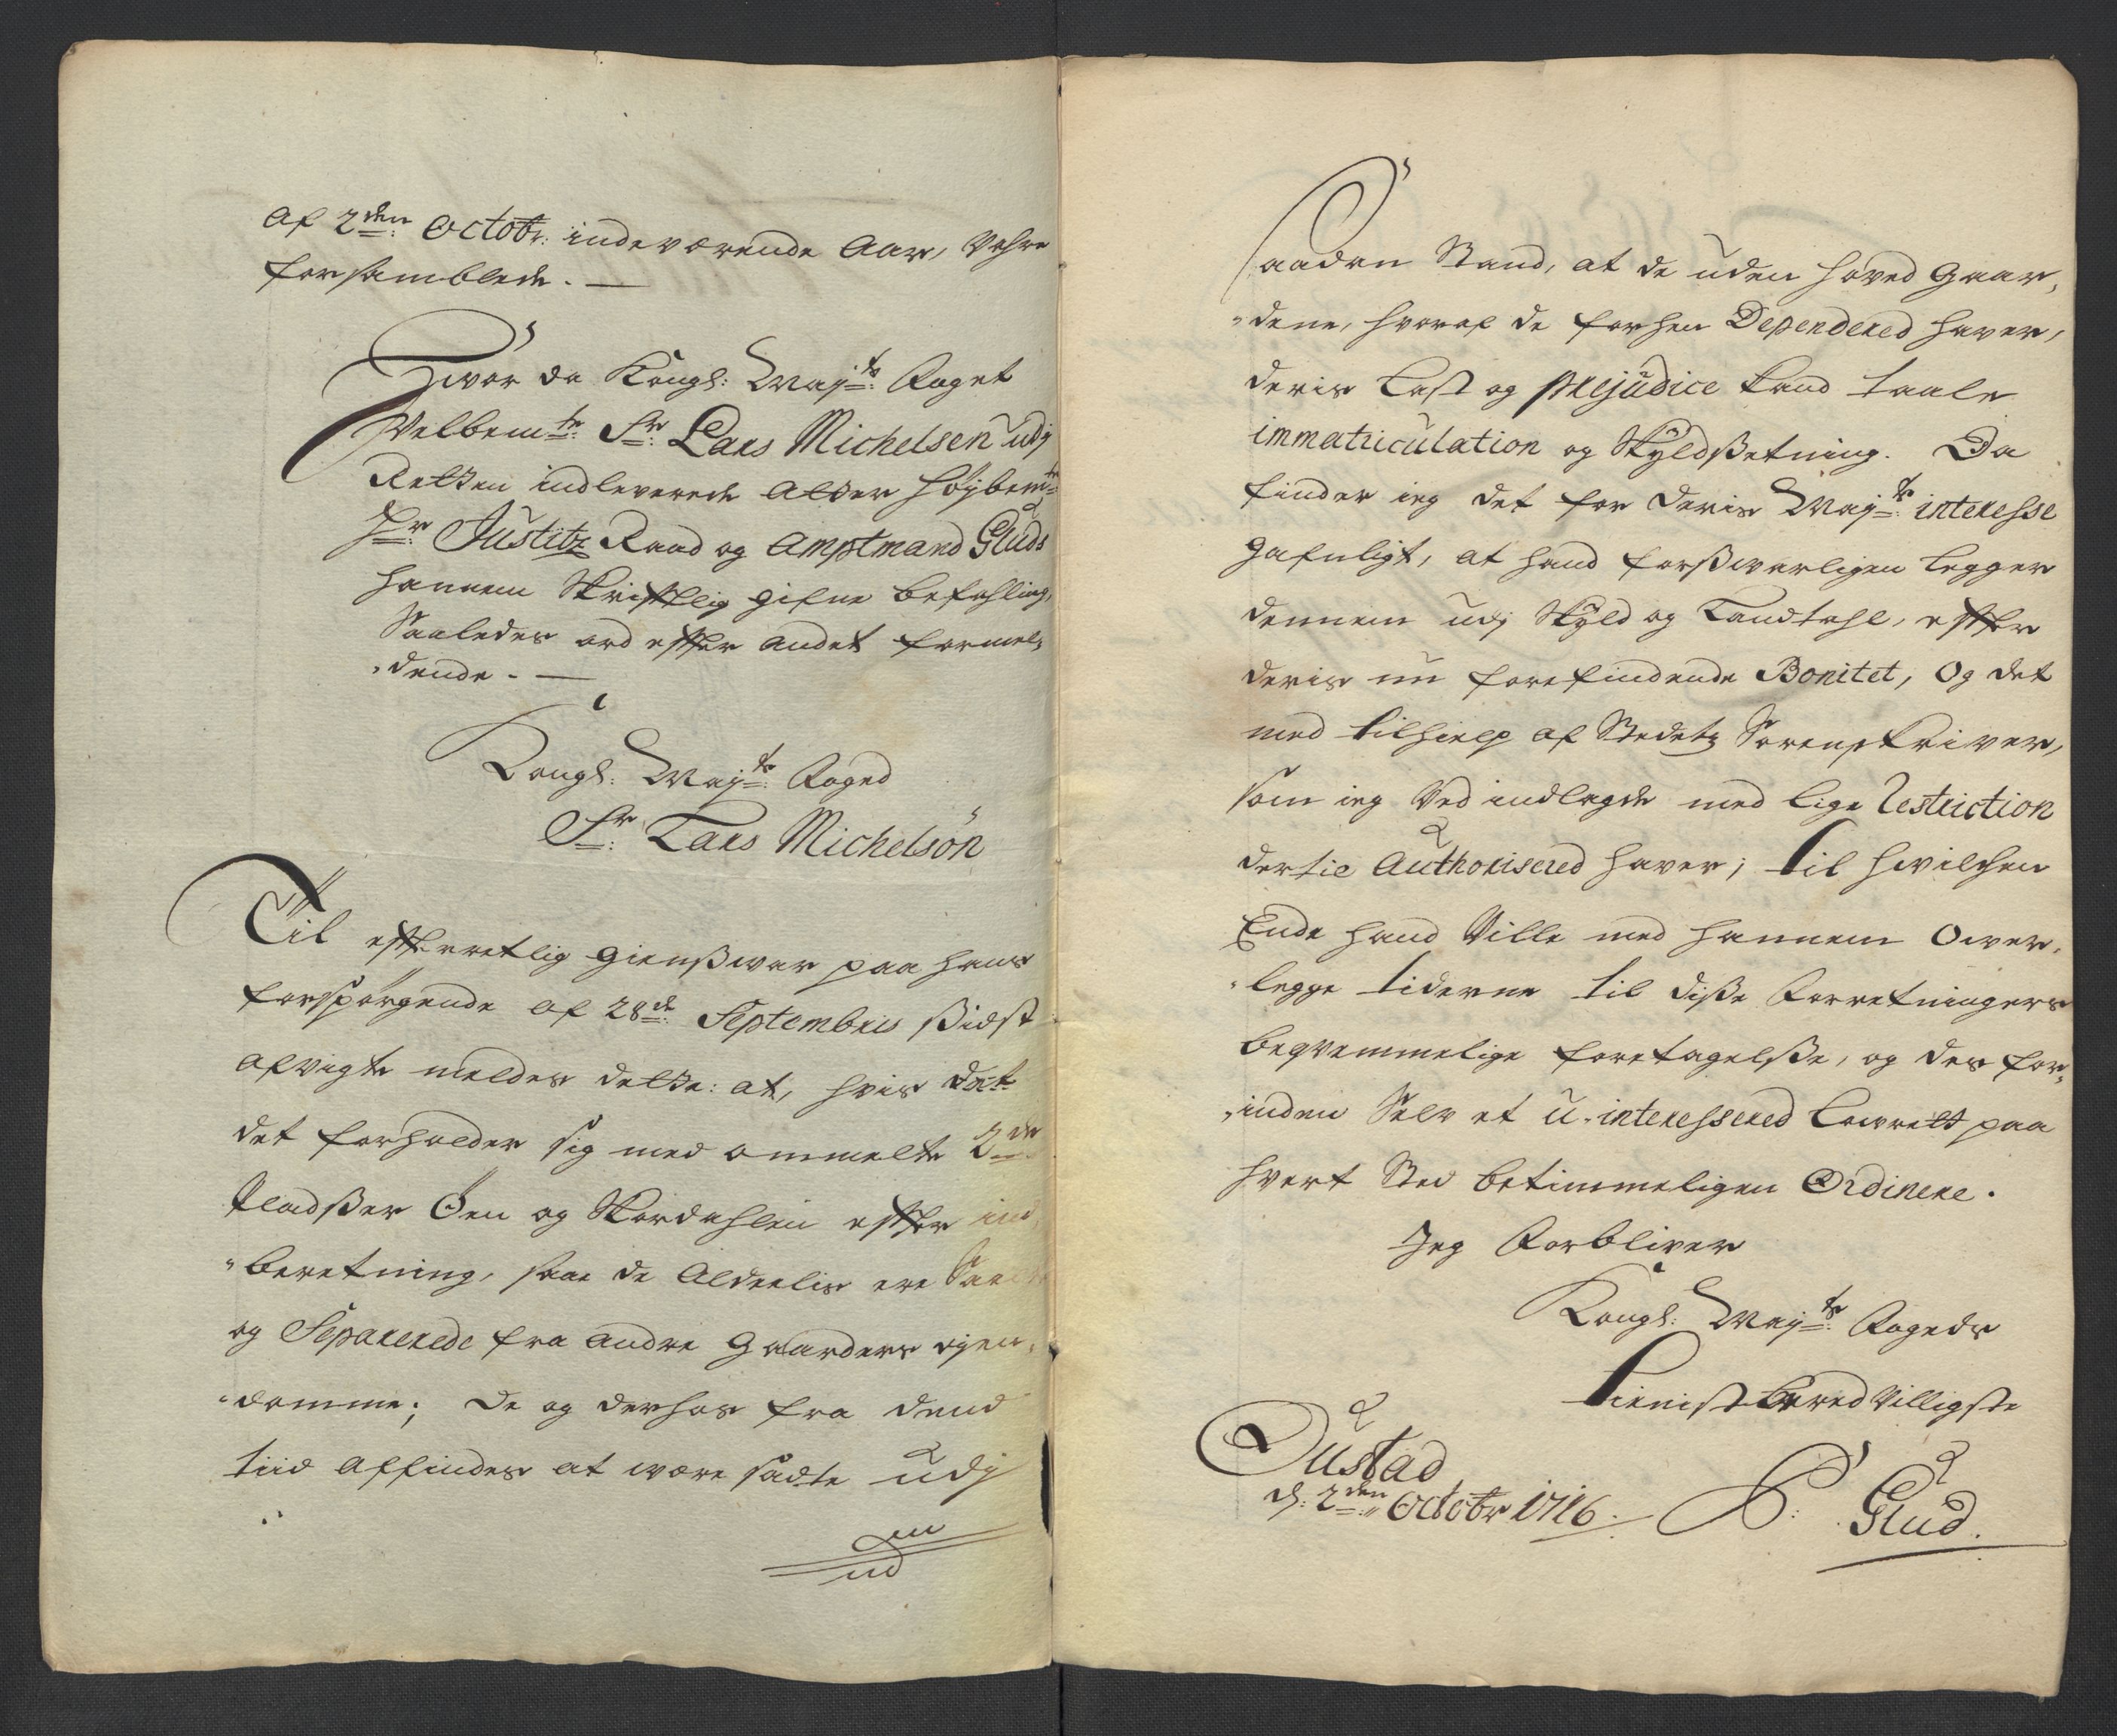 af 2den: Octobr: indeværende Aar, Vahre
forsamblede. —
Hvor da Kongl: Mayts: Foget
Velbemte: Sr: Lars Michelsen udj
Retten indleverede atter høybemte:
Hr: Justitz Raad og Amptmand Gluds
hannem Skrifftlig gifne befahling,
Saaledes ord effter andet formel„
„dende. —
Kongl: Mayts: Foged
Sr: Lars Michelsön
Til effterretlig giensvar paa hans
forspørgende af 28de: Septembris sidst
afvigte meldes dette: at, hvis dat
det forholder sig med ommelte 2de
Pladsser Øen og Skordahlen effter ind„
„beretning, saa de Aldeelis ere
og Separerede fra andre Gaarders eyen„
„domme; De og derhos fra dend
tiid affindes at være sadte udj
Saadan Stand, at de uden hoved Gaar„
„dene, hvoraf de forhen Dependered haver,
deris Last og præjudice kand taale
immatriculation og Skyldsetning. Da
finder ieg det for deris Mayts: interesse
gafnligt, at hand forsvarligen legger
dennem udj Skyld og Landtahl, effter
deris nu forefindende Bonitet, Og det
med tilhielp af Stedetz Sorenskriver,
som ieg ved indlagde med lige Restriction
dertil Authorisered haver; til hvilchen
Ende hand Ville med hannem Over„
„legge tiderne til disse Forretningers
beqvemmelige foretagelsse, og des for„
„inden Selv et U-interessered Laurett paa
hvert Sted betimmeligen Ordinere.
Jeg Forbliver
Kongl: Mayts: Fogeds
tienistberedvilligste
Oustad
d: 2den: Octobr 1716. S: Glud.